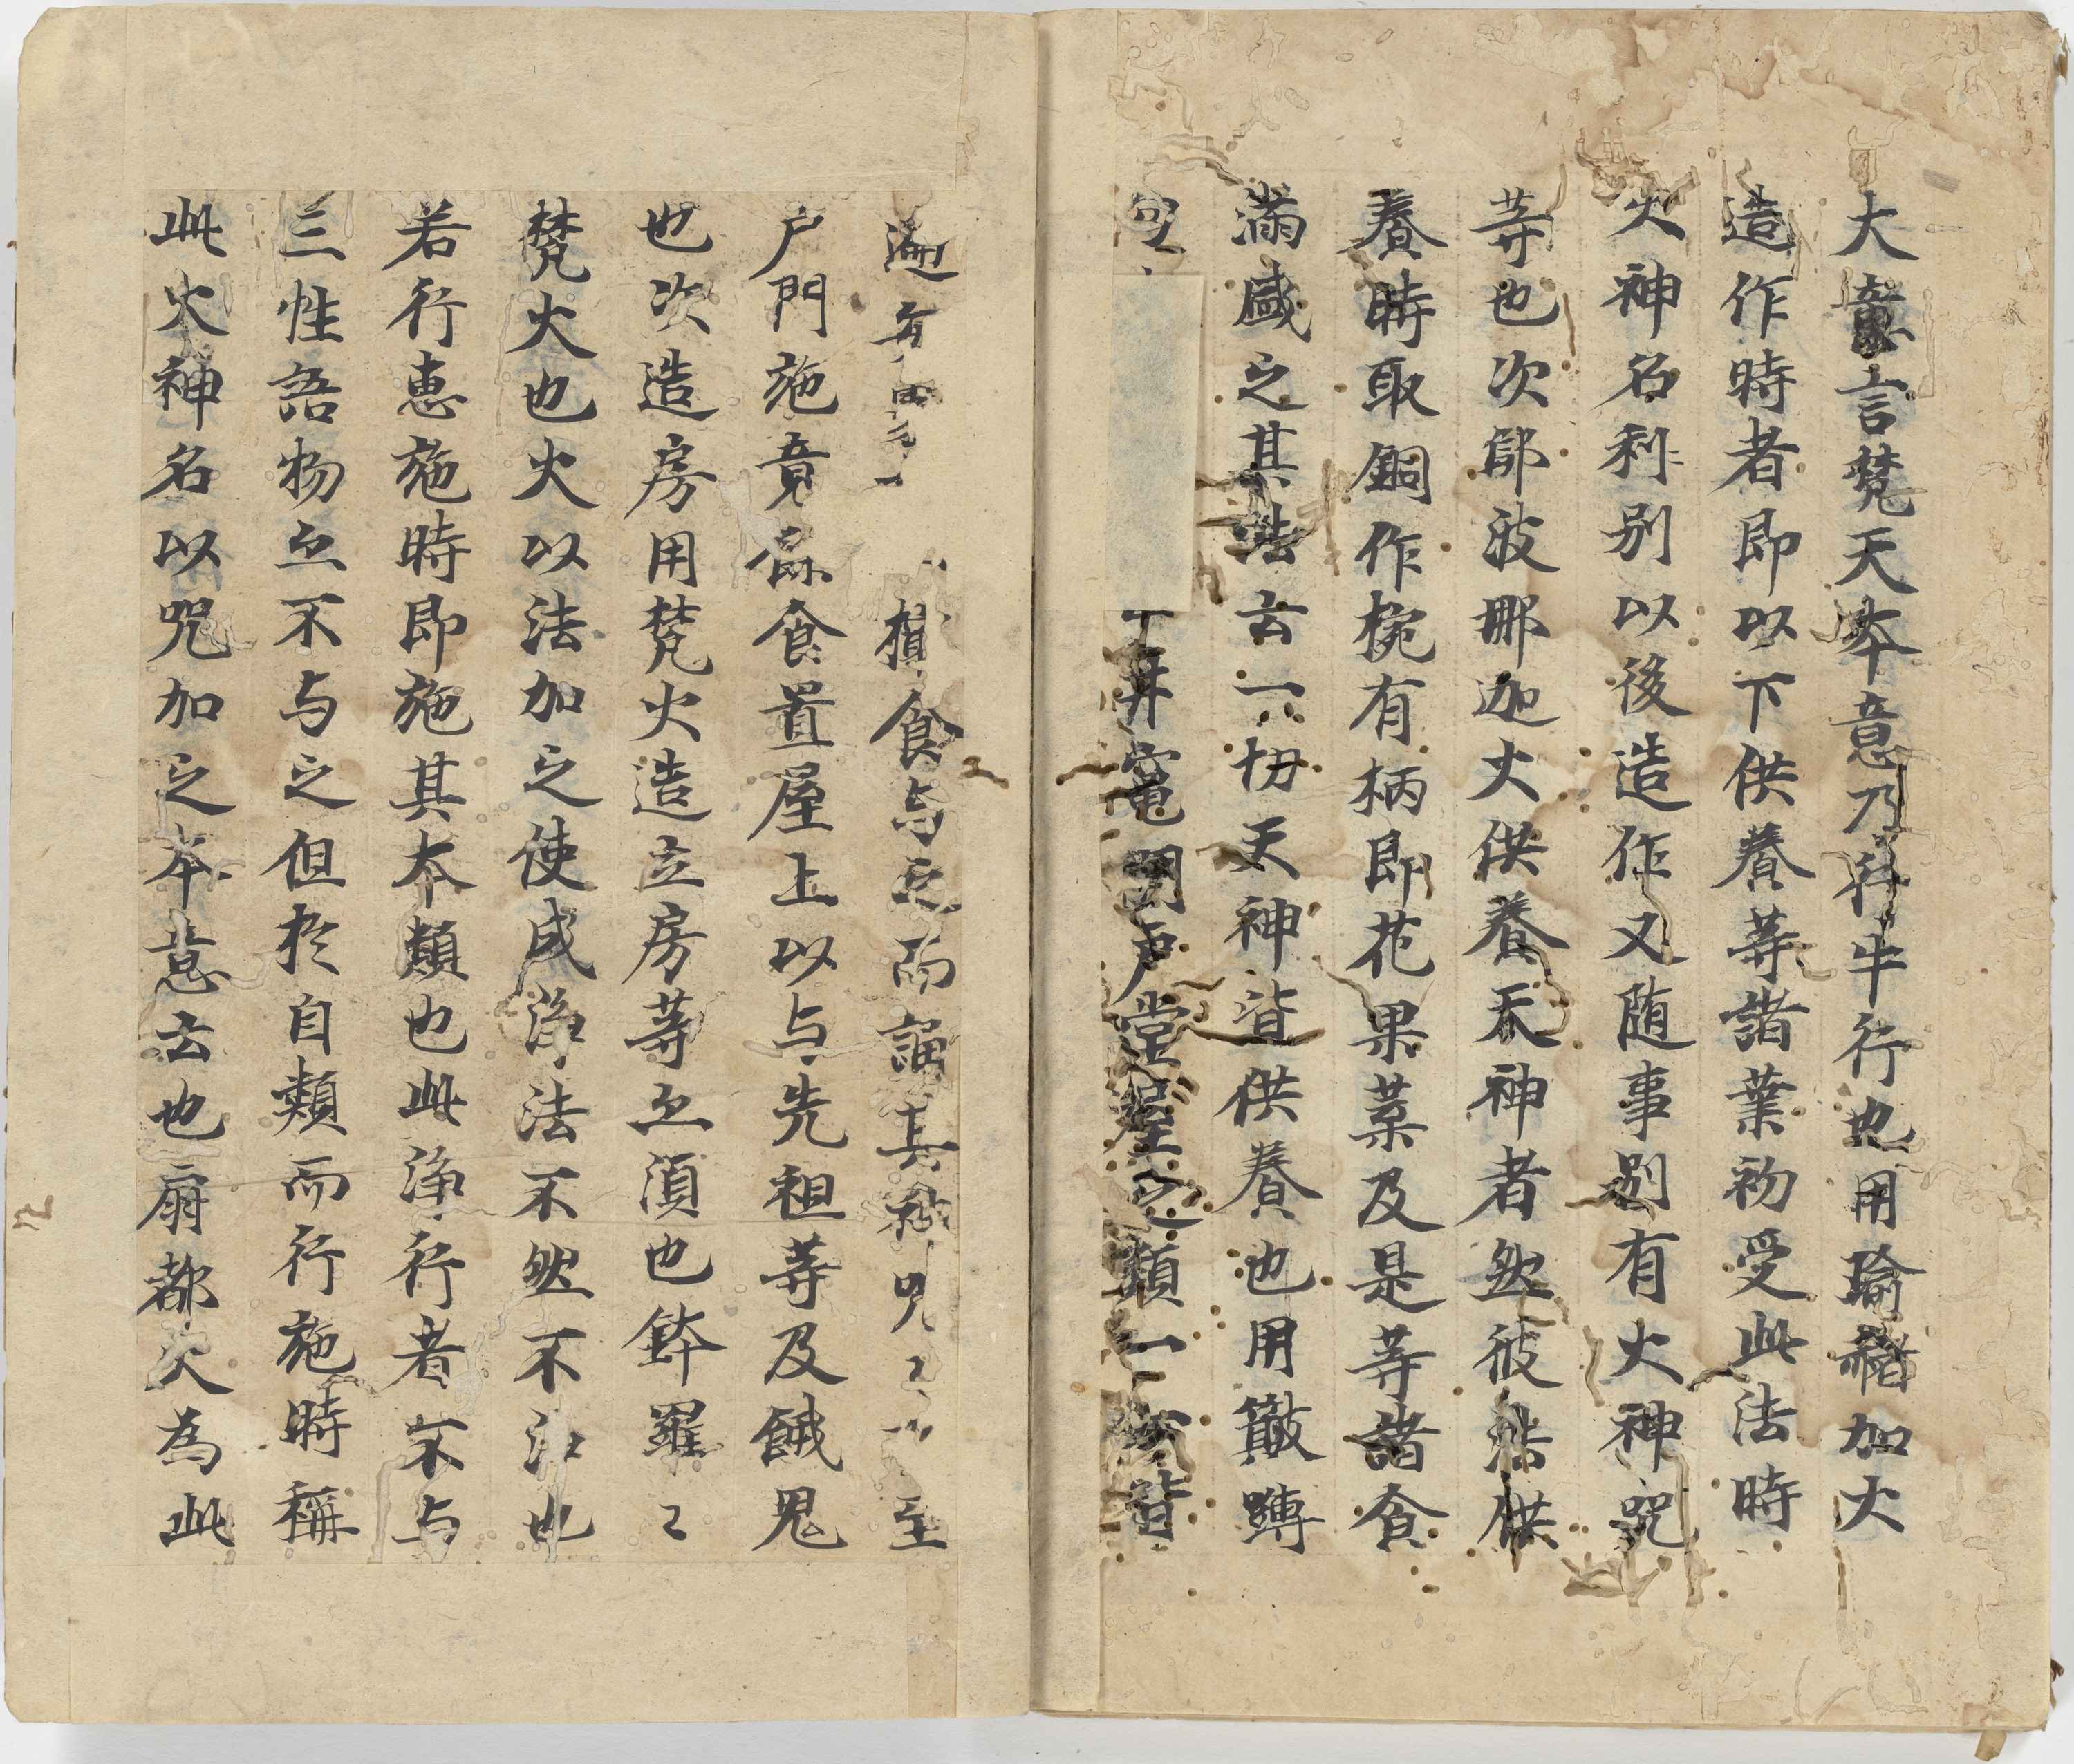 大意言梵天本意乃科牛行也用瑜稽加火
造作時者即以下供養等諸業初受此法時
火神名利別以後造作又随事別有火神咒
等也次鄔波那迦火供養天神者然彼然供
養時取銅作椀有柄即花果菓及是等諸食
滿盛之其法云一切天神皆供養也用簸嚩
丁井竈門戶堂屋之類一一物皆
遍
食与之而誦其神咒
至
户門施竟餘食置屋上以与先祖等及餓鬼
也次造房用梵火造立房等亦湏也鉢羅〻
梵火也火以法加之使成淨法不然不淨也
若行惠施時即施其本類也此淨行者不与
三性語物亦不与之但於自類而行施時稱
此火神名以咒加之本意云也扇都火為此